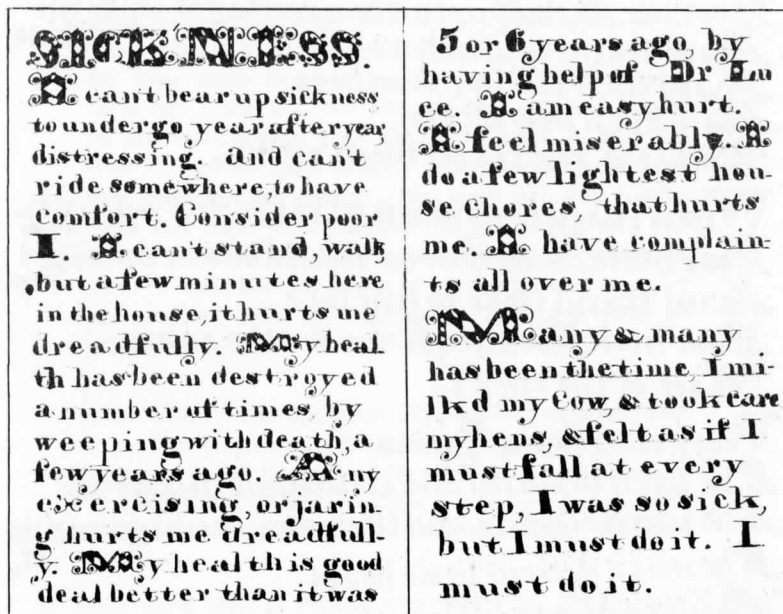 SICKNESS.
I can't bear up sickness
to undergo year after year,
distressing. And can't
ride somewhere, to have
comfort. Consider poor
I. I can't stand, walk
but a few minutes here
in the house, it hurts me
dreadfully. My heal
th has been destroyed
a number of times, by
weeping with death, a
few years ago. Any
exercising, or jarin-
g hurts me dreadfull-
y. My health is good
deal better than it was
5 or 6 years ago, by
having help of Dr Lu
ce. I am easy hurt.
I feel miserably. I
do a few lightest hou-
se chores, that hurts
me. I have complain-
ts all over me.
Many & many
has been the time, I mi-
lkd my Cow, & took care
my hens, & felt as if I
must fall at every
step, I was so sick,
but I must do it. I
must do it.